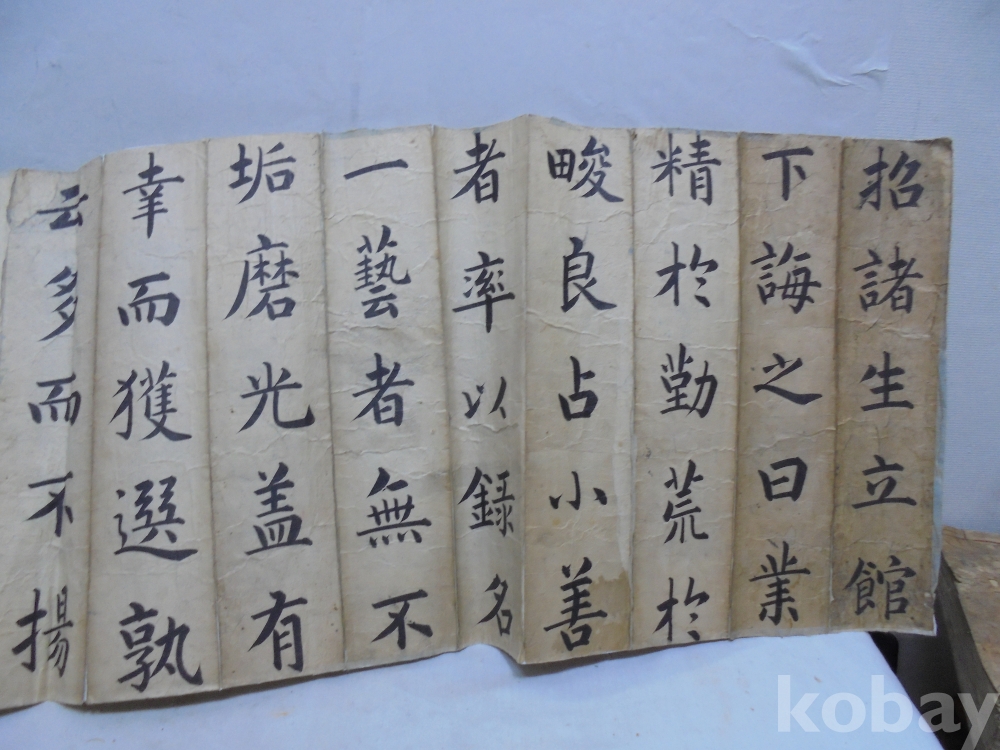 招諸生立館
下誨之曰業
精於勤荒於
畯良占小善
者率以録名
一藝者無不
垢磨光盖有
幸而獲選孰
云多而不揚
kobay